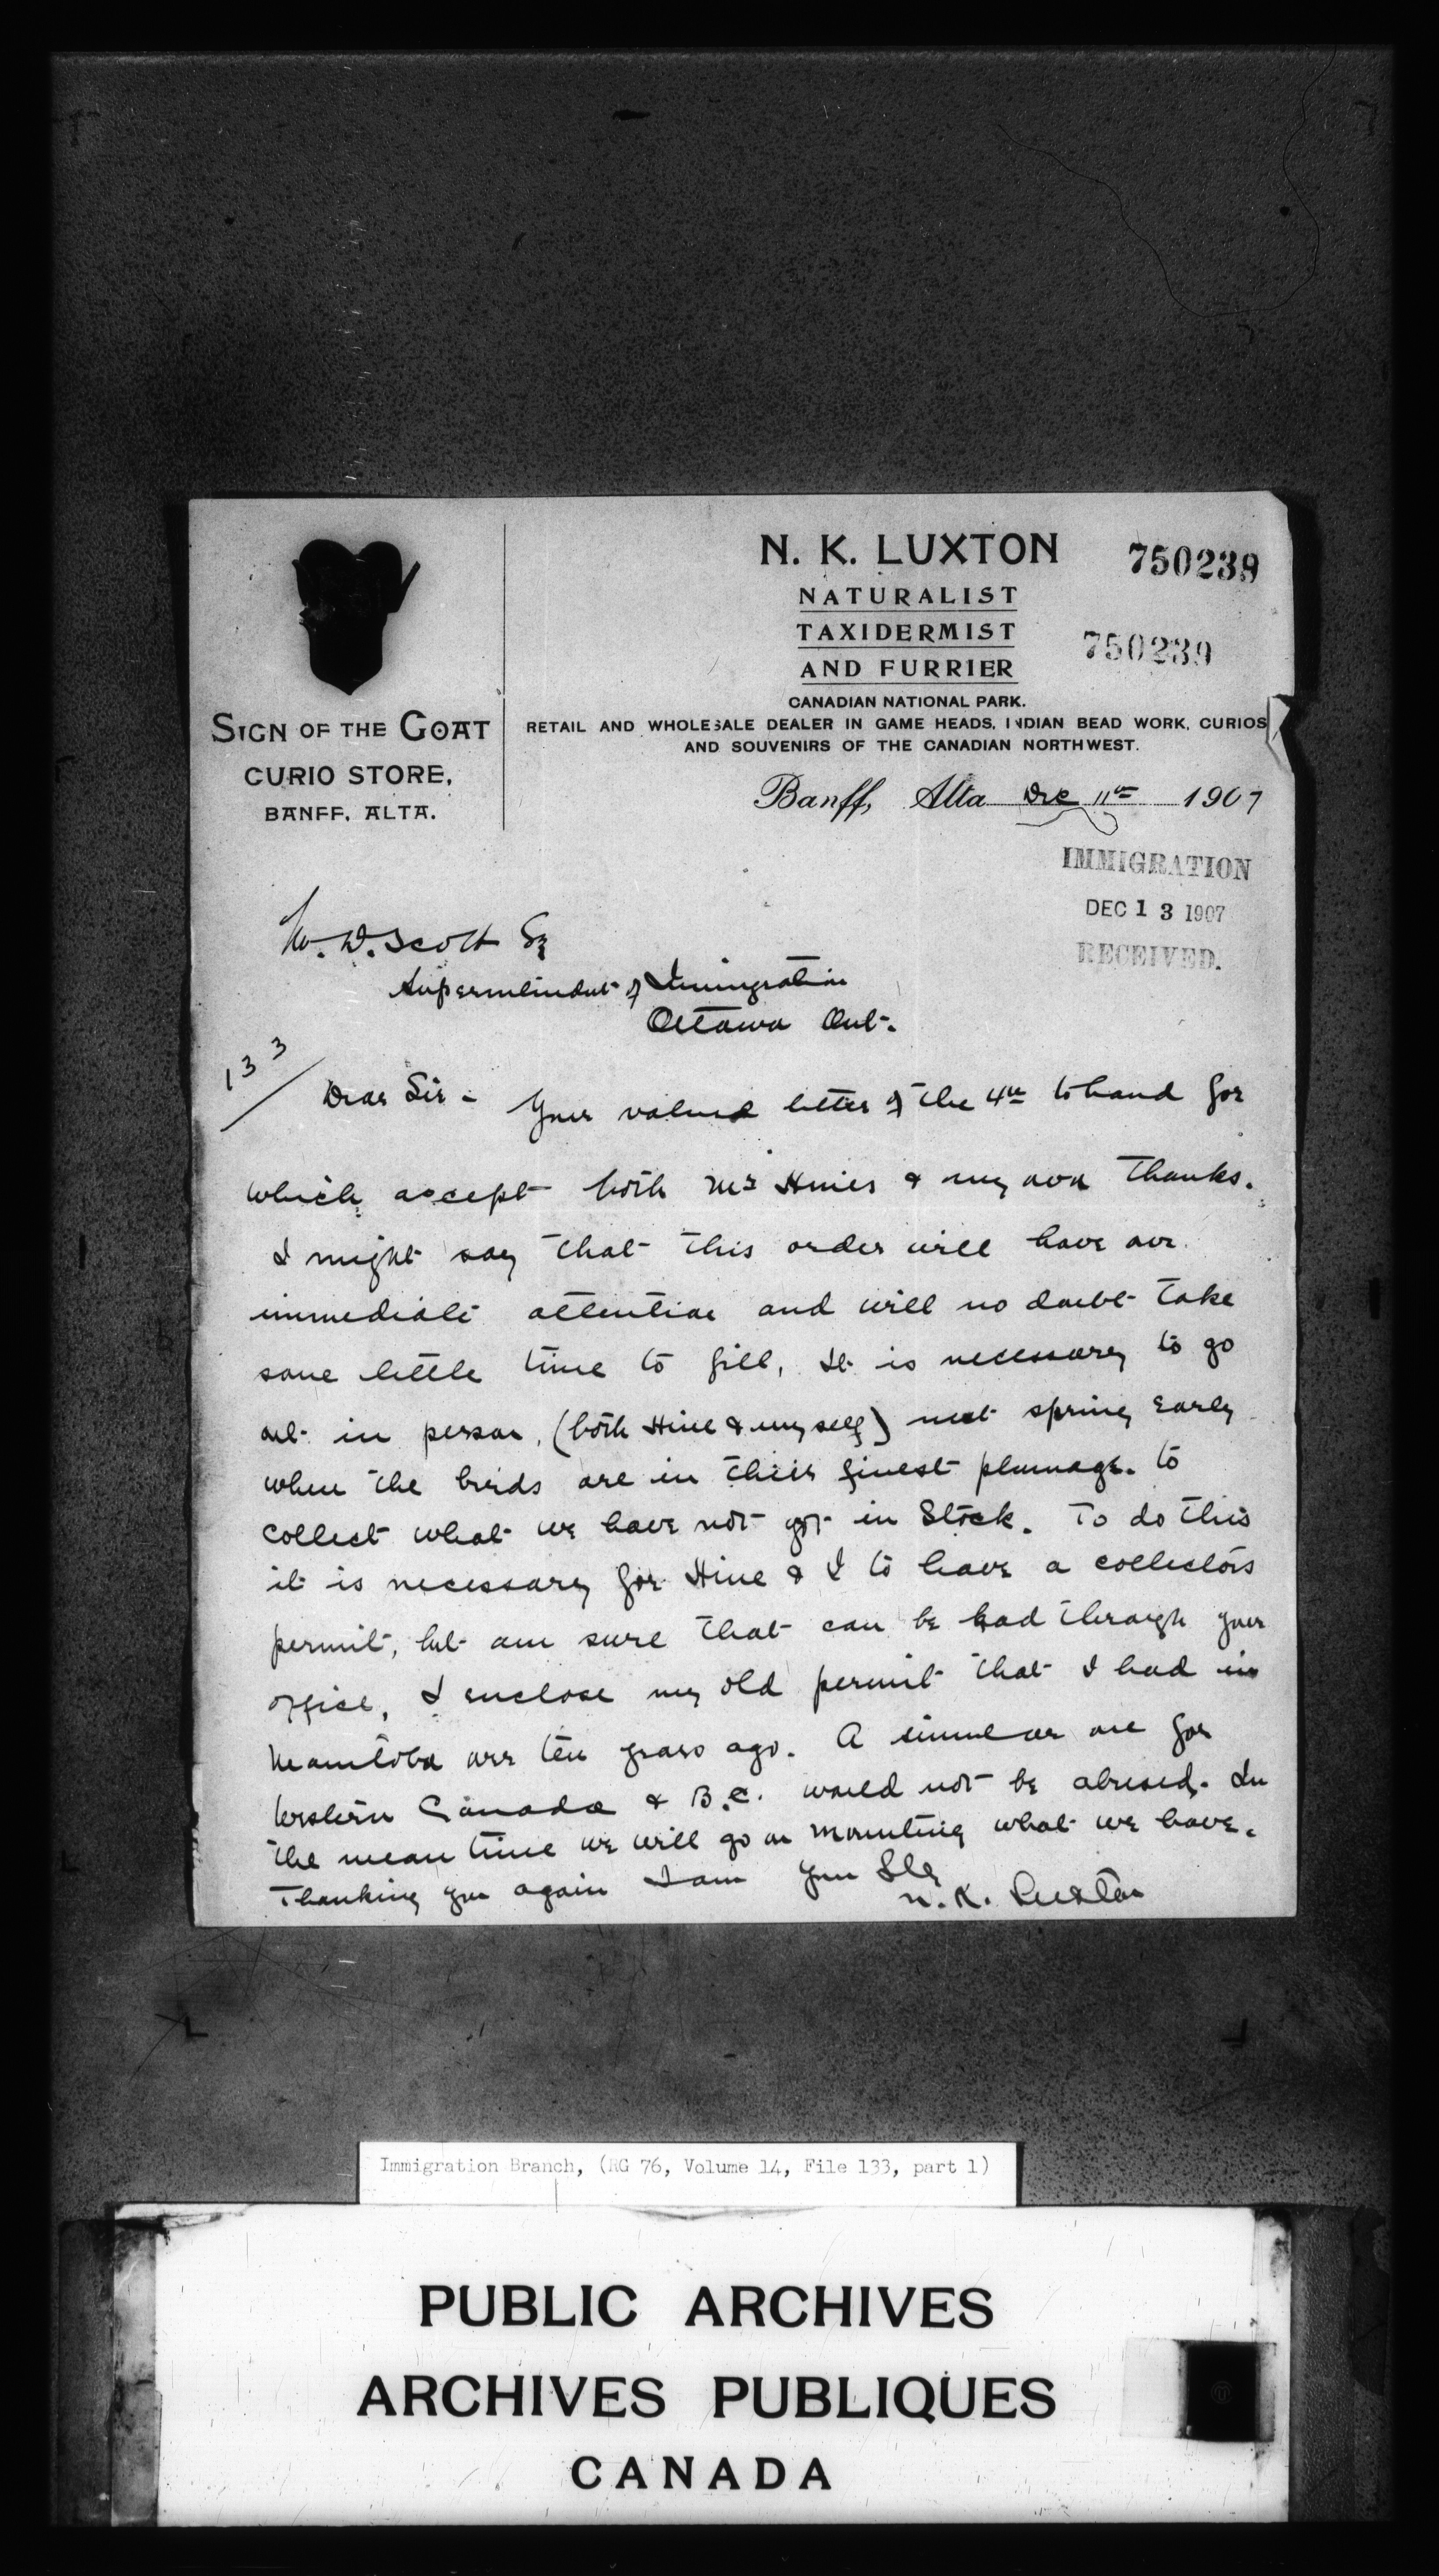 N. K. LUXTON
750239
NATURALIST
TAXIDERMIST
750239
AND FURRIER
CANADIAN NATIONAL PARK.
RETAIL AND WHOLESALE DEALER IN GAME HEADS, INDIAN BEAD WORK, CURIOS
AND SOUVENIRS OF THE CANADIAN NORTHWEST.
SIGN OF THE GOAT
CURIO STORE,
BANFF, ALTA.
Banff, Alta Dec 11th 1907
IMMIGRATION
DEC 13 1907
RECEIVED.
W. D. Scott Eq
Superintindut of Immigration
Ottawa Ont.
133
Dear Sir - Your valued letter of the 4th to hand for
which accept both Mr Hines & my own thanks.
I might say that this order will have our
immediate attention and will no doubt take
some little time to fill, It is necessary to go
out in person, (both Hine & myself) next spring early
when the birds are in their finest plumage. to
collect what we have not got in Stock. To do this
it is necessary for Hine & I to have a collectors
permit, but am sure that can be had through your
office, I enclose my old permit that I had in
Manitoba over ten years ago. A simular one for
Western Canada & B.C. would not be abused. In
the mean time we will go on mounting what we have.
Thanking you again I am Your Sly
N. K. Luxton
Immigration Branch, (RG 76, Volume 14, File 133, part 1)
PUBLIC ARCHIVES
ARCHIVES PUBLIQUES
CANADA